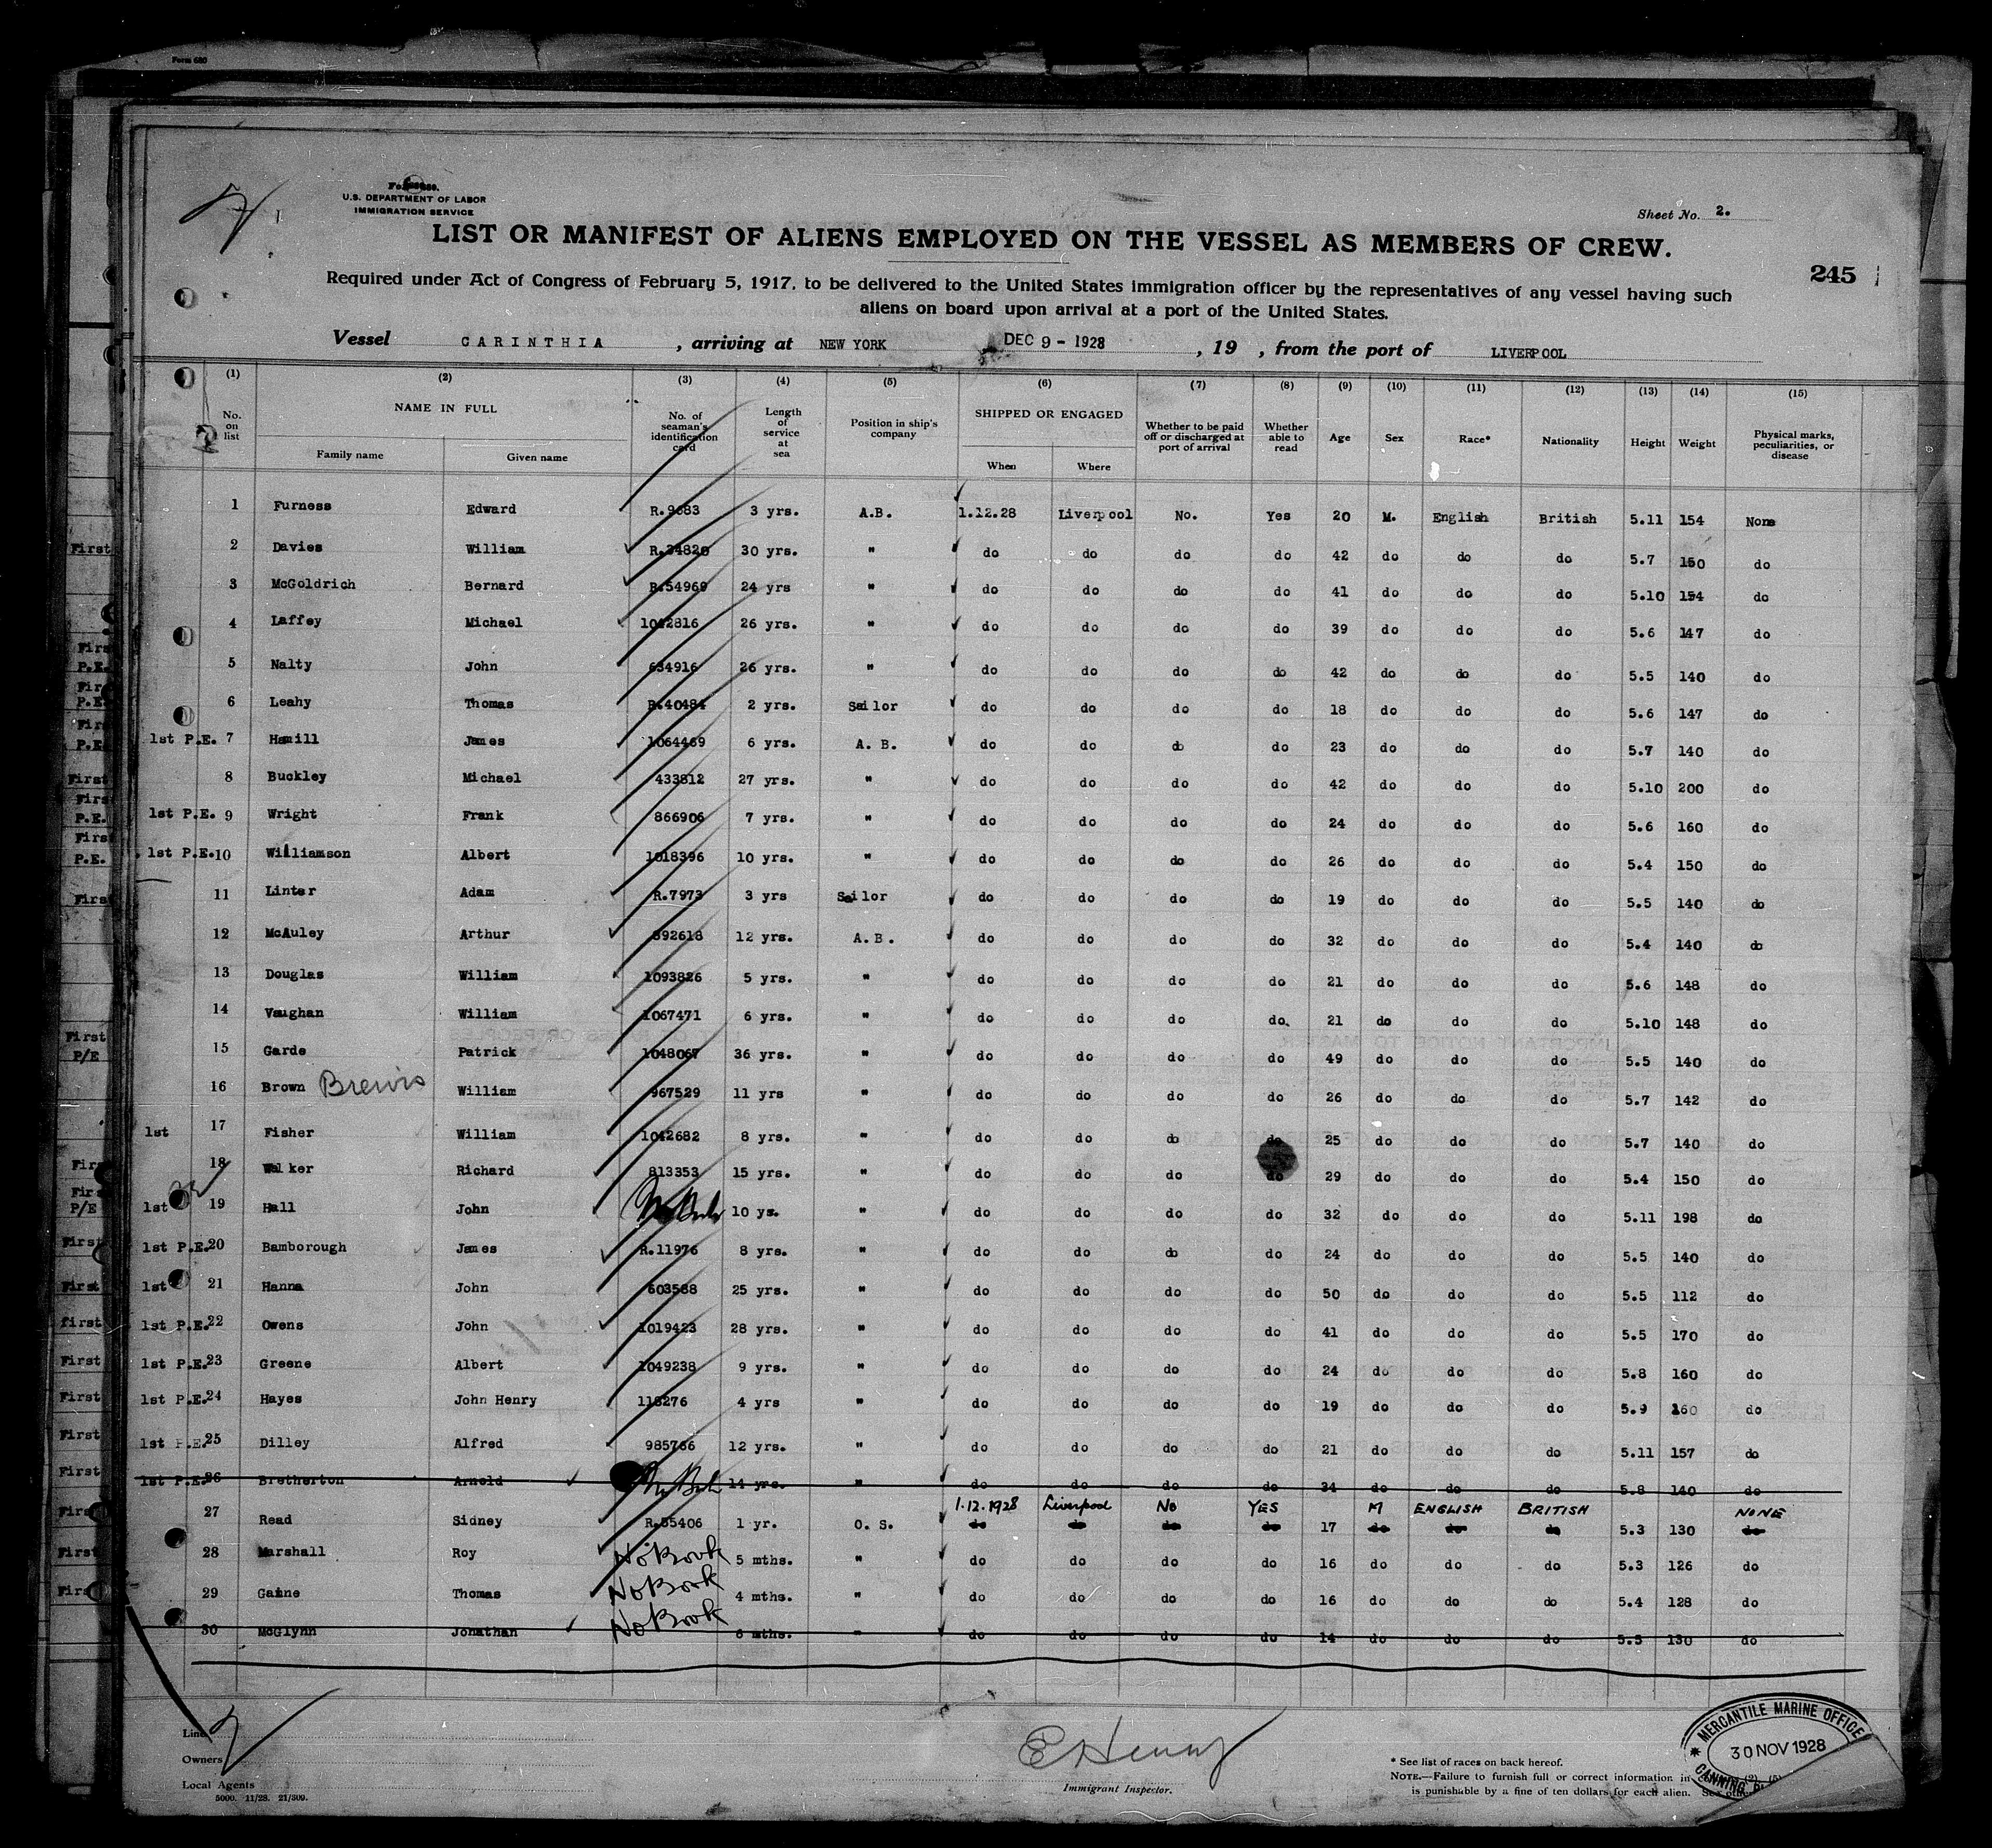 Form 680
U.S. DEPARTMENT OF LABOR
IMMIGRATION SERVICE
Sheet No. 2.
LIST OR MANIFEST OF ALIENS EMPLOYED ON THE VESSEL AS MEMBERS OF CREW.
245
Required under Act of Congress of February 5, 1917, to be delivered to the United States immigration officer by the representatives of any vessel having such
aliens on board upon arrival at a port of the United States.
Vessel CARINTHIA, arriving at NEW YORK DEC 9 - 1928, 19 , from the port of LIVERPOOL
(1) (2) (3) (4) (5) (6) (7) (8) (9) (10) (11) (12) (13) (14) (15)
No. on list NAME IN FULL Family name Given name No. of seaman's identification card Length of service at sea Position in ship's company SHIPPED OR ENGAGED When Where Whether to be paid off or discharged at port of arrival Whether able to read Age Sex Race* Nationality Height Weight Physical marks, peculiarities, or disease
1 Furness Edward R.9683 3 yrs. A.B. 1.12.28 Liverpool No. Yes 20 M. English British 5.11 154 None
First 2 Davies William R.34828 30 yrs. " do do do do 42 do do do 5.7 150 do
3 McGoldrich Bernard R.54969 24 yrs " do do do do 41 do do do 5.10 154 do
4 Laffey Michael 1042816 26 yrs. " do do do do 39 do do do 5.6 147 do
5 Nalty John 634916 26 yrs. " do do do do 42 do do do 5.5 140 do
6 Leahy Thomas R.40484 2 yrs. Sailor do do do do 18 do do do 5.6 147 do
1st P.E. 7 Hamill James 1064469 6 yrs. A. B. do do do do 23 do do do 5.7 140 do
First 8 Buckley Michael 433812 27 yrs. " do do do do 42 do do do 5.10 200 do
1st P.E. 9 Wright Frank 866906 7 yrs. " do do do do 24 do do do 5.6 160 do
1st P.E. 10 Williamson Albert 1018396 10 yrs. " do do do do 26 do do do 5.4 150 do
11 Linter Adam R.7973 3 yrs Sailor do do do do 19 do do do 5.5 140 do
12 McAuley Arthur 892618 12 yrs. A.B. do do do do 32 do do do 5.4 140 do
13 Douglas William 1093826 5 yrs. " do do do do 21 do do do 5.6 148 do
14 Vaughan William 1067471 6 yrs. " do do do do. 21 do do do 5.10 148 do
15 Garde Patrick 1048067 36 yrs. " do do do do 49 do do do 5.5 140 do
16 Brown Brewis William 967529 11 yrs " do do do do 26 do do do 5.7 142 do
1st 17 Fisher William 1042682 8 yrs. " do do do do 25 do do do 5.7 140 do
18 Walker Richard 813353 15 yrs. " do do do do 29 do do do 5.4 150 do
1st 19 Hall John 10 ys. " do do do do 32 do do do 5.11 198 do
1st P.E. 20 Bamborough James R.11976 8 yrs. " do do do do 24 do do do 5.5 140 do
1st 21 Hanna John 603588 25 yrs. " do do do do 50 do do do 5.5 112 do
1st P.E. 22 Owens John 1019423 28 yrs. " do do do do 41 do do do 5.5 170 do
1st P.E. 23 Greene Albert 1049238 9 yrs. " do do do do 24 do do do 5.8 160 do
1st P.E. 24 Hayes John Henry 118276 4 yrs " do do do do 19 do do do 5.9 160 do
1st P.E. 25 Dilley Alfred 985766 12 yrs. " do do do do 21 do do do 5.11 157 do
1st P.E. 26 Bretherton Arnold 14 yrs. " do do do do 34 do do do 5.8 140 do
1.12.1928 Liverpool No YES M ENGLISH BRITISH NONE
27 Read Sidney R.55406 1 yr. O. S. do do do do 17 do do do 5.3 130 do
28 Marshall Roy No Book 5 mths. " do do do do 16 do do do 5.3 126 do
29 Gaine Thomas No Book 4 mths. " do do do do 16 do do do 5.4 128 do
30 McGlynn Jonathan No Book 6 mths. " do do do do 14 do do do 5.5 130 do
Line
Owners
Local Agents
5000. 11/28. 21/309.
E Henny
Immigrant Inspector.
* See list of races on back hereof.
NOTE.—Failure to furnish full or correct information in
is punishable by a fine of ten dollars for each alien.
MERCANTILE MARINE OFFICE
30 NOV 1928
CANNING